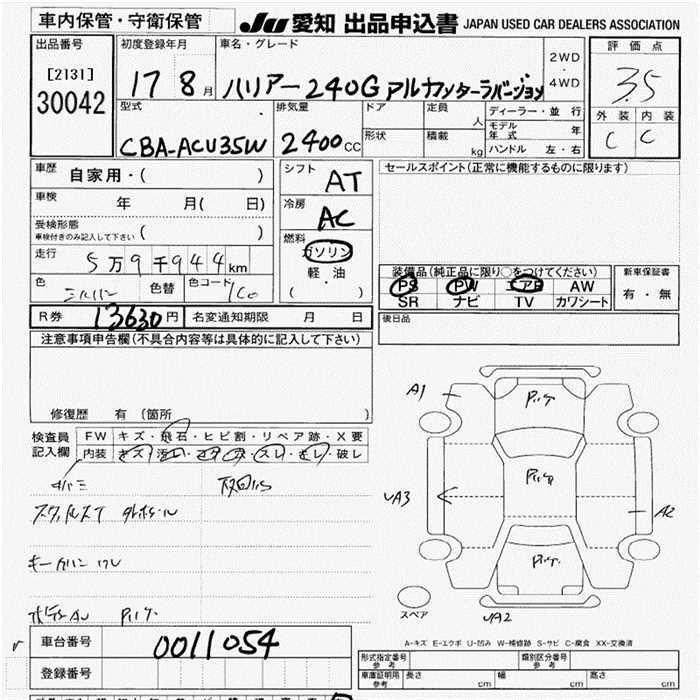 車内保管・守衛保管
JU 愛知 出品申込書 JAPAN USED CAR DEALERS ASSOCIATION
出品番号
[2131]
30042
初度登録年月
17 8月
車名・グレード
ハリアー 240G アルカンターラバージョン
2WD
・
4WD
評価点
3.5
外装 内装
C C
型式
CBA-ACU35W
排気量
2400cc
ドア
形状
定員 人
積載 kg
ディーラー・並行
モデル年式 年
ハンドル 左・右
車歴 自家用・( )
車検 年 月( 日)
受検形態
車検付きのみ記入して下さい ( )
走行 5万9千944km
色 シルバー 色替 色コード 1C0
シフト AT
冷房 AC
燃料
ガソリン
軽・油
( )
セールスポイント(正常に機能するものに限ります)
装備品(純正品に限り○をつけてください)
PS PW エアB AW
SR ナビ TV カワシート
新車保証書
有・無
R券 13630円 名変通知期限 月 日
後日品
注意事項申告欄(不具合内容等は具体的に記入して下さい)
修復歴 有 (箇所 )
検査員
記入欄
FW キズ・飛石・ヒビ割・リペア跡・X要
内装 キズ・汚れ・コゲ・穴・スレ・切レ・破レ
A1
UA3
A2
UA2
スペア
A-キズ E-エクボ U-凹み W-補修跡 S-サビ C-腐食 XX-交換済
車台番号 0011054
登録番号
形式指定番号
参考
類別区分番号
参考
車庫証明用
参考
長さ cm 幅 cm 高さ cm